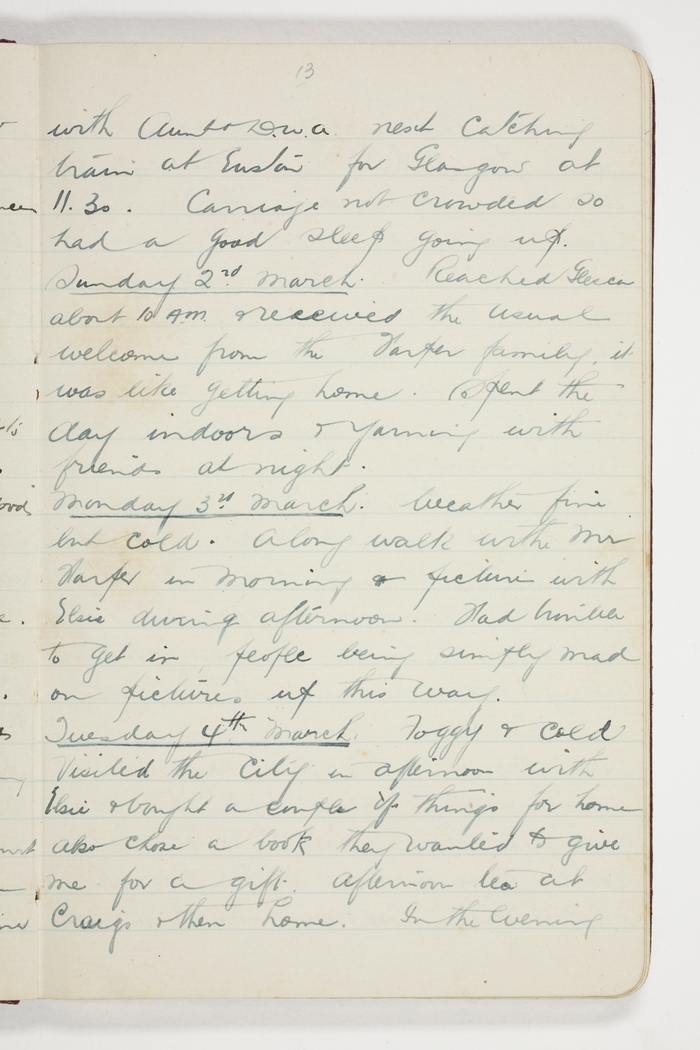 13
with Aunt & D.W.A. next catching
train at Euston for Glasgow at
11.30. Carriage not crowded so
had a good sleep going up.
Sunday 2nd March. Reached Glasgow
about 10 A.M. & received the usual
welcome from the Harper family, it
was like getting home. Spent the
day indoors & yarning with
friends at night.
Monday 3rd March. Weather fine
but cold. A long walk with Mr
Harper in morning & pictures with
Elsie during afternoon. Had trouble
to get in, people being simply mad
on pictures up this way.
Tuesday 4th March. Foggy & cold
Visited the City in afternoon with
Elsie & bought a couple of things for home
also chose a book they wanted to give
me for a gift. Afternoon tea at
Craigs & then home. In the evening